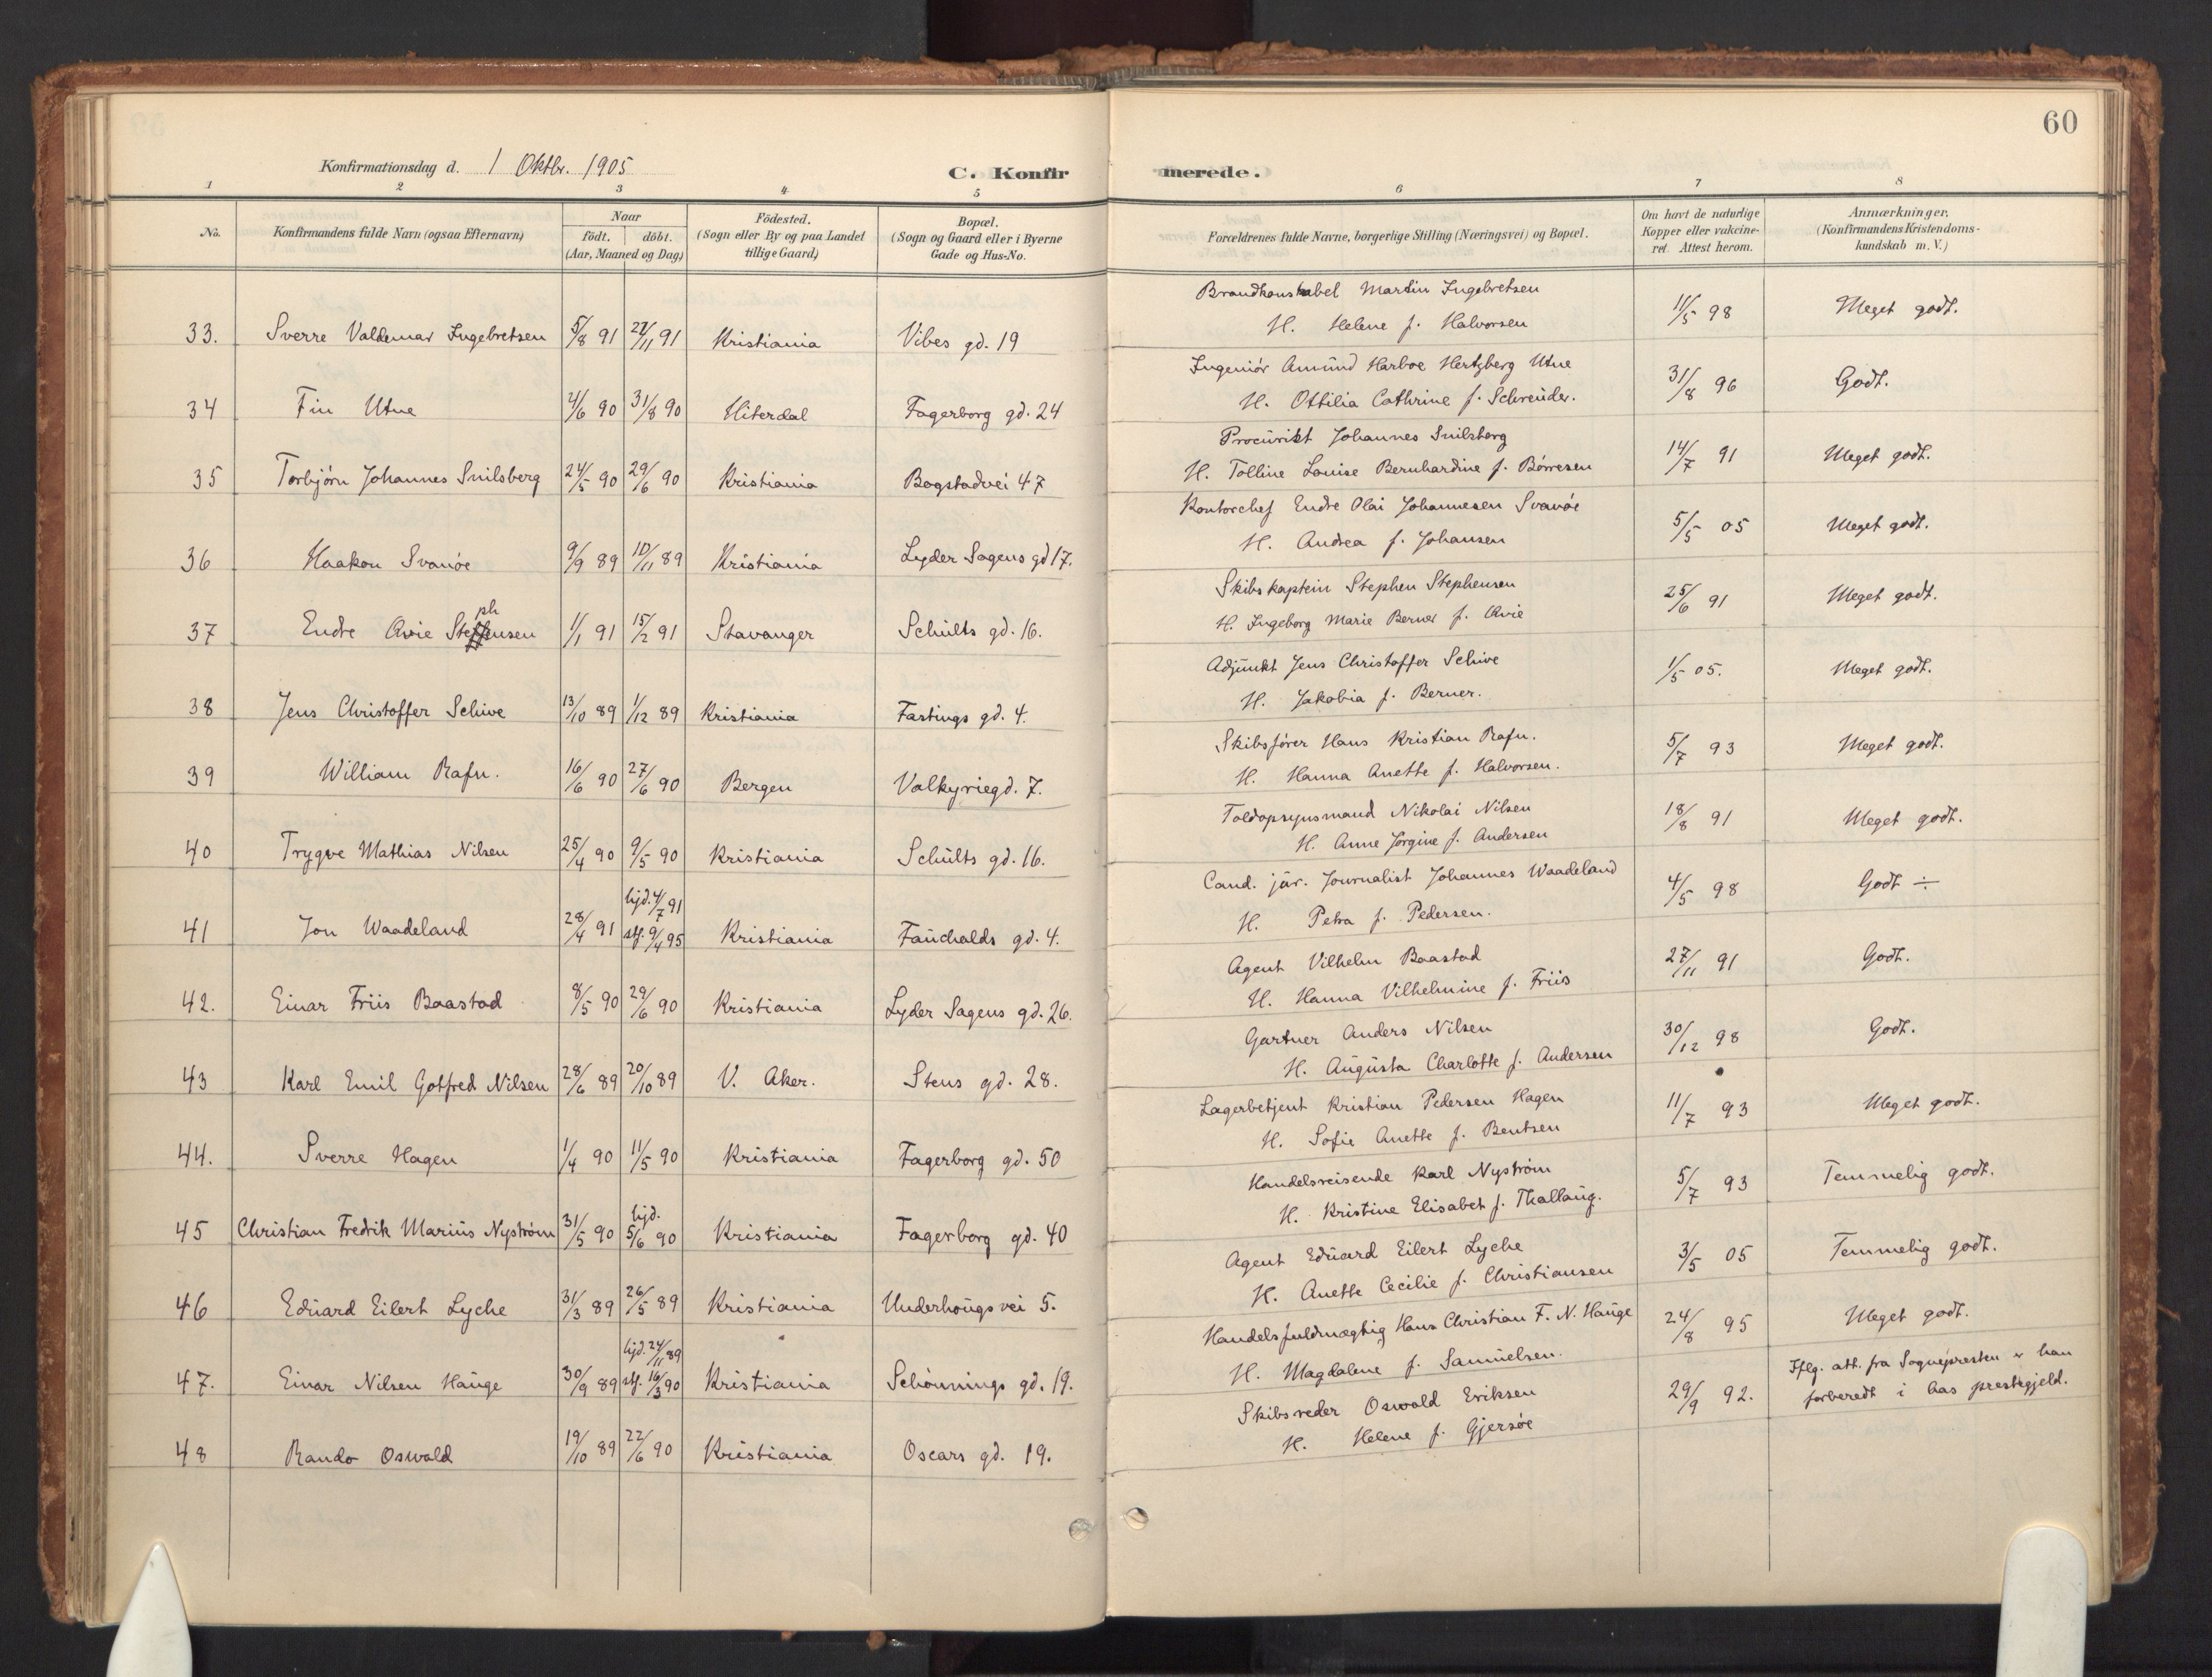 60
Konfirmationsdag d. 1 Oktbr. 1905
C. Konfirmerede.
1 2 3 4 5 6 7 8
No.
Konfirmandens fulde Navn (ogsaa Efternavn)
Naar
födt. döbt.
(Aar, Maaned og Dag)
Födested.
(Sogn eller By og paa Landet
tillige Gaard)
Bopæl.
(Sogn og Gaard eller i Byerne
Gade og Hus-No.
Forældrenes fulde Navne, borgerlige Stilling (Næringsvei) og Bopæl.
Om havt de naturlige
Kopper eller vakcine-
ret. Attest herom.
Anmærkninger.
(Konfirmandens Kristendoms-
kundskab m. V.)
33. Sverre Valdemar Ingebretsen 5/8 91 22/11 91 Kristiania Vibes gd. 19
Brandkonstabel Martin Ingebretsen
H. Helene f. Halvorsen
11/5 98 Meget godt.
34 Fin Utne 4/6 90 31/8 90 Hiterdal Fagerborg gd. 24
Ingeniör Amund Harboe Hertzberg Utne
H. Ottilia Cathrine f. Schreuder.
31/8 96 Godt.
35 Torbjörn Johannes Snilsberg 24/5 90 29/6 90 Kristiania Bogstadvei 47
Procurist Johannes Snilsberg
H. Tolline Louise Bernhardine f. Börresen
14/7 91 Meget godt.
36 Haakon Svanöe 9/9 89 10/11 89 Kristiania Lyder Sagens gd 17.
Kontorchef Endre Olai Johannesen Svanöe
H. Andrea f. Johansen
5/5 05 Meget godt.
37 Endre Qvie Stephensen 1/1 91 15/2 91 Stavanger Schults gd. 16.
Skibskaptein Stephen Stephensen
H. Ingeborg Marie Berner f. Qvie
25/6 91 Meget godt.
38 Jens Christoffer Schive 13/10 89 1/12 89 Kristiania Fastings gd. 4.
Adjunkt Jens Christoffer Schive
H. Jakobia f. Berner.
1/5 05. Meget godt.
39 William Rafn. 16/6 90 27/6 90 Bergen Valkyriegd. 7.
Skibsförer Hans Kristian Rafn.
H. Hanna Anette f. Halvorsen.
5/7 93 Meget godt.
40 Trygve Mathias Nilsen 25/4 90 9/5 90 Kristiania Schults gd. 16.
Toldopsynsmand Nikolai Nilsen
H. Anne Jörgine f. Andersen
18/8 91 Meget godt.
41 Jon Waadeland 28/4 91 hjd. 4/7 91 stf. 9/4 95 Kristiania Fauchalds gd. 4.
Cand. jur. Journalist Johannes Waadeland
H. Petra f. Pedersen.
4/5 98 Godt ÷
42. Einar Friis Baastad 8/5 90 29/6 90 Kristiania Lyder Sagens gd. 26.
Agent Vilhelm Baastad
H. Hanna Vilhelmine f. Friis
27/11 91 Godt.
43 Karl Emil Gotfred Nilsen 28/6 89 20/10 89 V. Aker. Stens gd. 28.
Gartner Anders Nilsen
H. Augusta Charlotte f. Andersen
30/12 98 Godt.
44. Sverre Hagen 1/4 90 11/5 90 Kristiania Fagerborg gd. 50
Lagerbetjent Kristian Pedersen Hagen
H. Sofie Anette f. Bentsen
11/7 93 Meget godt.
45 Christian Fredrik Marius Nyström 31/5 90 hjd. 5/6 90 Kristiania Fagerborg gd. 40
Handelsreisende Karl Nyström
H. Kristine Elisabet f. Thallaug.
5/7 93 Temmelig godt.
46 Eduard Eilert Lyche 31/3 89 26/5 89 Kristiania Underhougsvei 5.
Agent Eduard Eilert Lyche
H. Anette Cecilie f. Christiansen
3/5 05 Temmelig godt.
47. Einar Nilsen Hauge 30/9 89 hjd. 24/11 89 stf. 16/3 90 Kristiania Schönnings gd. 19.
Handelsfuldmægtig Hans Christian F. N. Hauge
H. Magdalene f. Samuelsen.
24/8 95 Meget godt.
48 Rando Oswald 19/10 89 22/6 90 Kristiania Oscars gd. 19.
Skibsreder Oswald Eriksen
H. Helene f. Gjersöe
29/9 92. Iflg. att. fra Sognepresten er han
forberedt i hans prestegjeld.